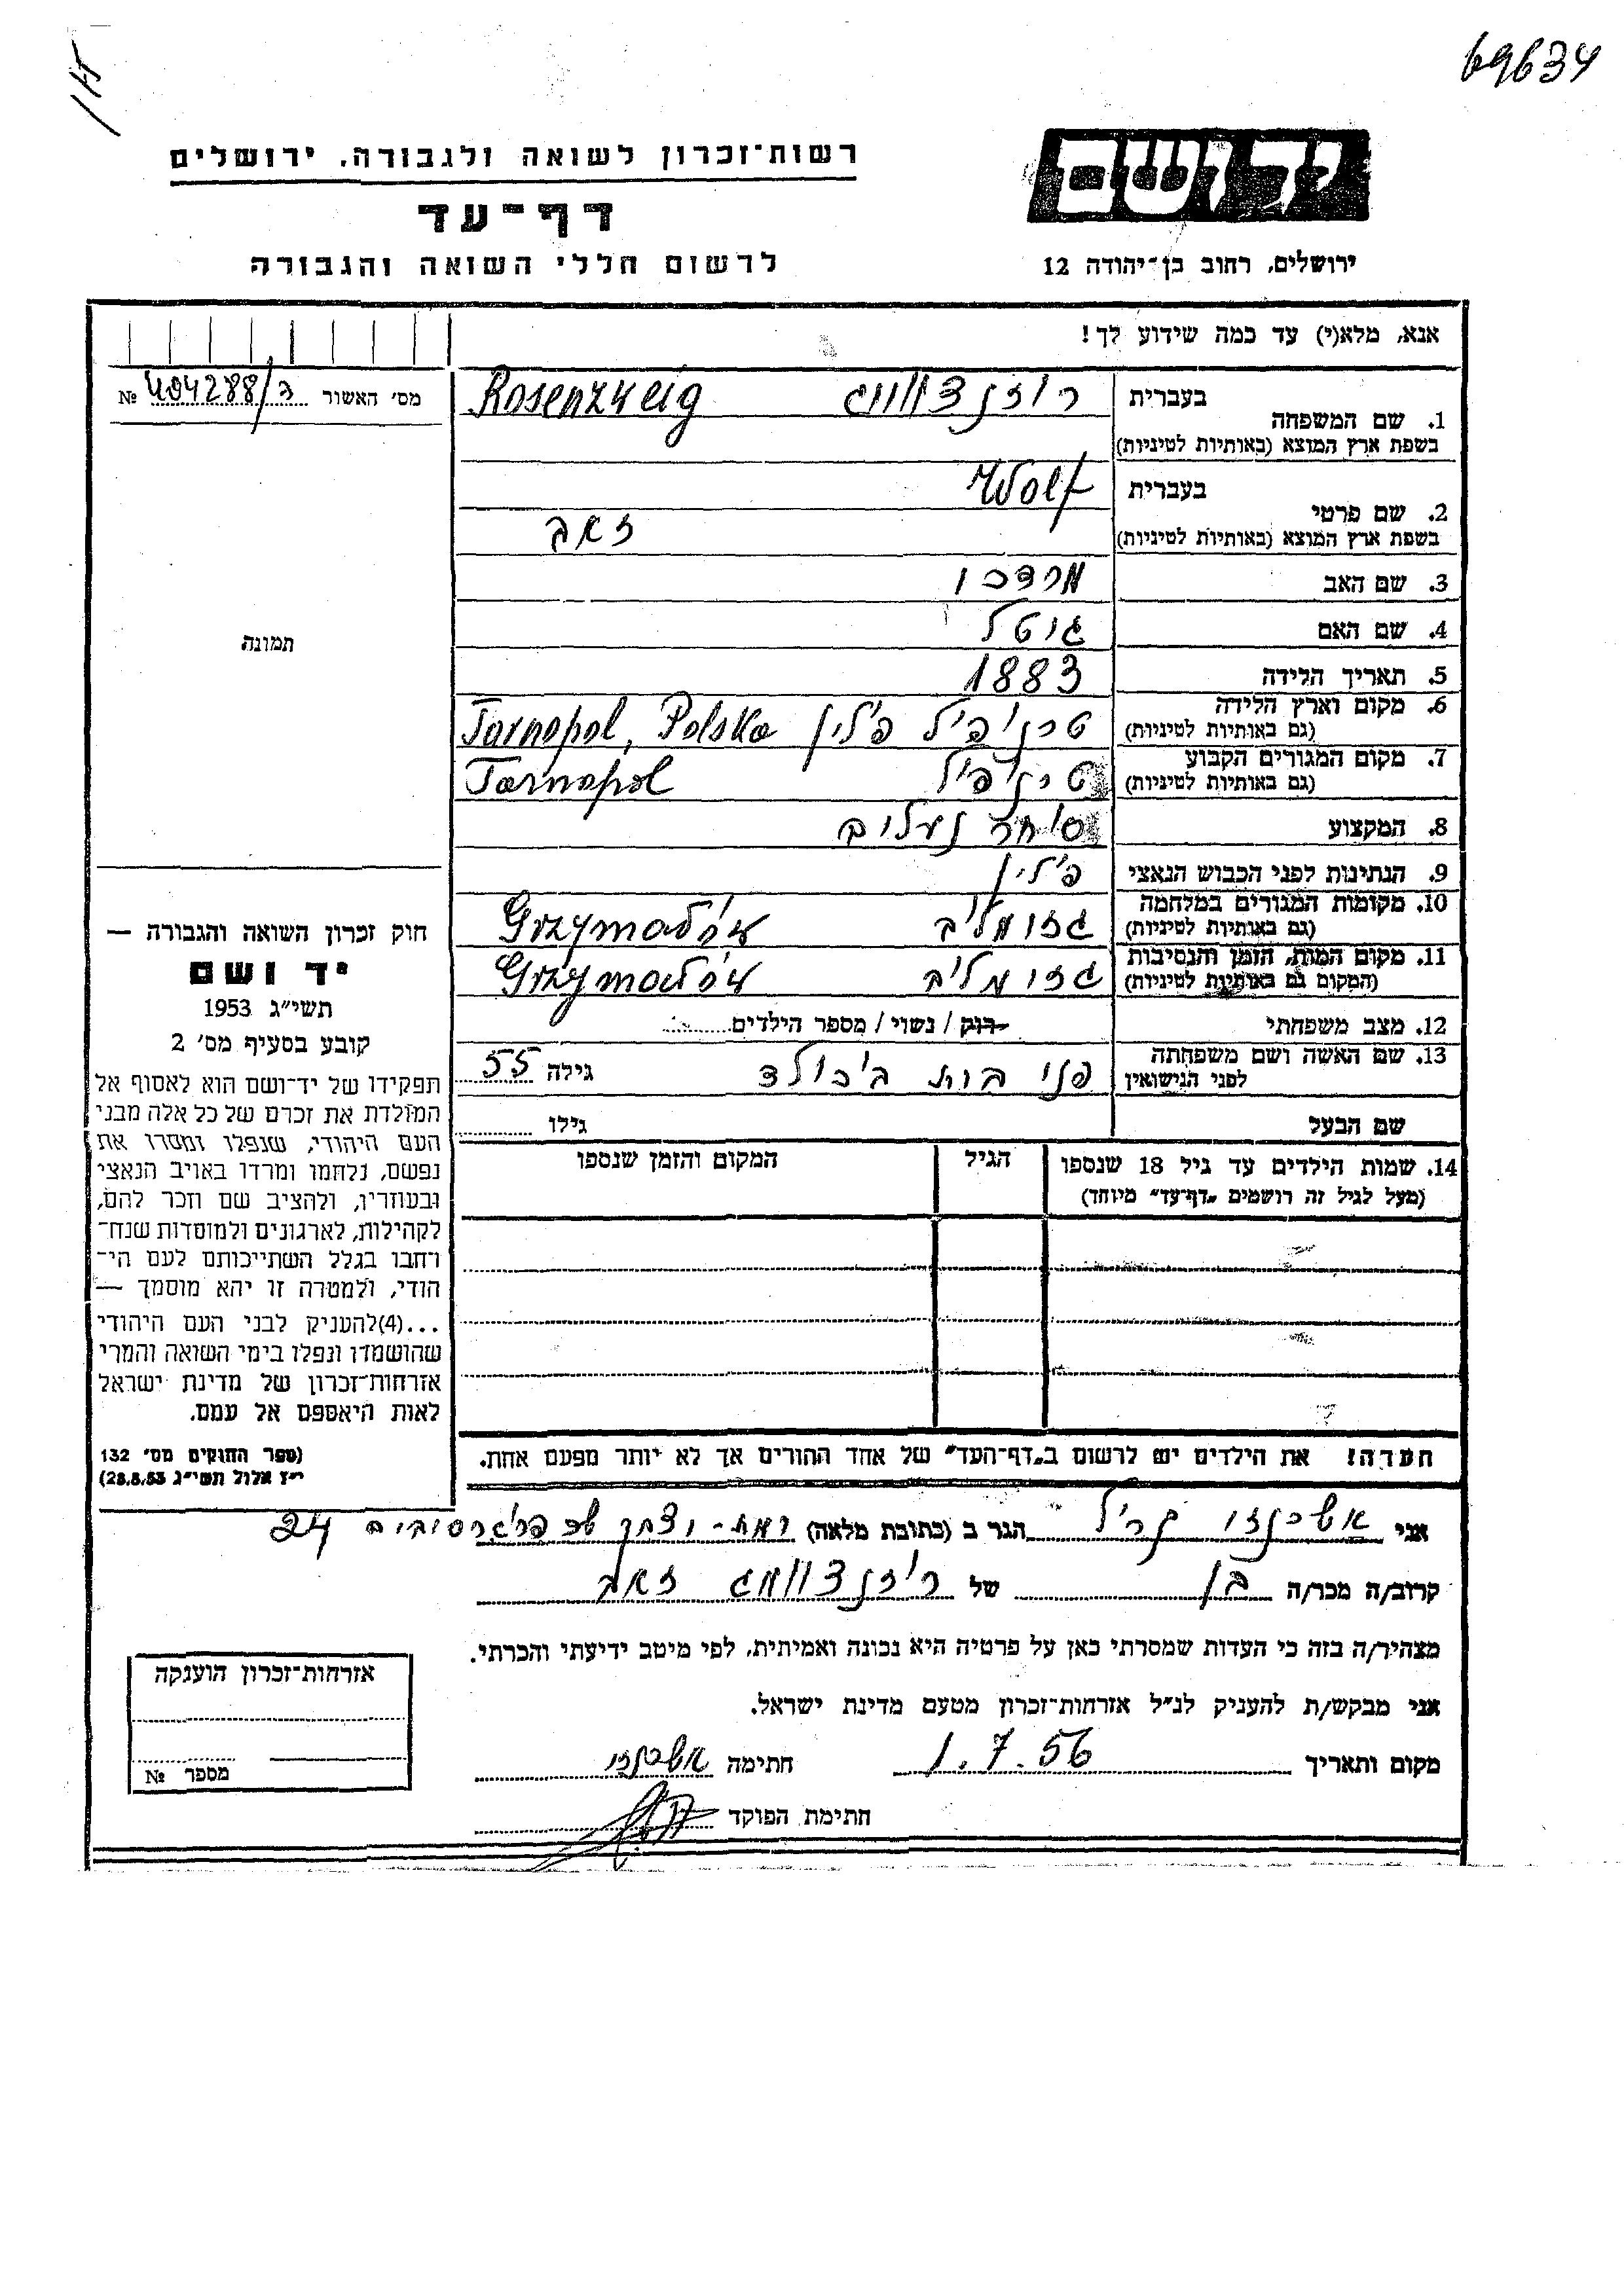 69634
רשות־זכרון לשואה ולגבורה, ירושלים
דף־עד
לרשום חללי השואה והגבורה
יד ושם
ירושלים, רחוב בן־יהודה 12
אנא, מלא(י) עד כמה שידוע לך!
מס׳ האשור № 404288/ה
תמונה
1. שם המשפחה בעברית רוזנצווייג Rosenzweig
בשפת ארץ המוצא (באותיות לטיניות)
2. שם פרטי בעברית Wolf
בשפת ארץ המוצא (באותיות לטיניות) זאב
3. שם האב מרדכי
4. שם האם גיטל
5. תאריך הלידה 1883
6. מקום וארץ הלידה (גם באותיות לטיניות) טרנופיל פולין Tarnopol, Polska
7. מקום המגורים הקבוע (גם באותיות לטיניות) טרנופיל Tarnopol
8. המקצוע סוחר נעלים
9. הנתינות לפני הכבוש הנאצי פולין
10. מקומות המגורים במלחמה (גם באותיות לטיניות) גזימליב Grzymałów
11. מקום המות, הזמן והנסיבות (המקום גם באותיות לטיניות) גזימליב Grzymałów
12. מצב משפחתי רוק / נשוי / מספר הילדים
13. שם האשה ושם משפחתה לפני הנישואין פני בית גילה 55
שם הבעל גילו
14. שמות הילדים עד גיל 18 שנספו הגיל המקום והזמן שנספו
(מעל לגיל זה רושמים „דף־עד״ מיוחד)
הערה! את הילדים יש לרשום ב„דף־העד״ של אחד ההורים אך לא יותר מפעם אחת.
חוק זכרון השואה והגבורה —
יד ושם
תשי״ג 1953
קובע בסעיף מס׳ 2
תפקידו של יד־ושם הוא לאסוף אל
המולדת את זכרם של כל אלה מבני
העם היהודי, שנפלו ומסרו את
נפשם, נלחמו ומרדו באויב הנאצי
ובעוזריו, ולהציב שם וזכר להם,
לקהילות, לארגונים ולמוסדות שנח־
רחבו בגלל השתייכותם לעם הי־
הודי, ולמטרה זו יהא מוסמך —
...(4)להעניק לבני העם היהודי
שהושמדו ונפלו בימי השואה והמרי
אזרחות־זכרון של מדינת ישראל
לאות היאספם אל עמם.
(ספר החוקים מס׳ 132
י״ז אלול תשי״ג 28.8.53)
אני אשכנזי הגר ב (כתובת מלאה) רמת-יצחק 24
קרוב/ה מכר/ה בן של רוזנצווייג זאב
מצהיר/ה בזה כי העדות שמסרתי כאן על פרטיה היא נכונה ואמיתית, לפי מיטב ידיעתי והכרתי.
אני מבקש/ת להעניק לנ״ל אזרחות־זכרון מטעם מדינת ישראל.
מקום ותאריך 1.7.56 חתימה אשכנזי
חתימת הפוקד
אזרחות־זכרון הוענקה
מספר №